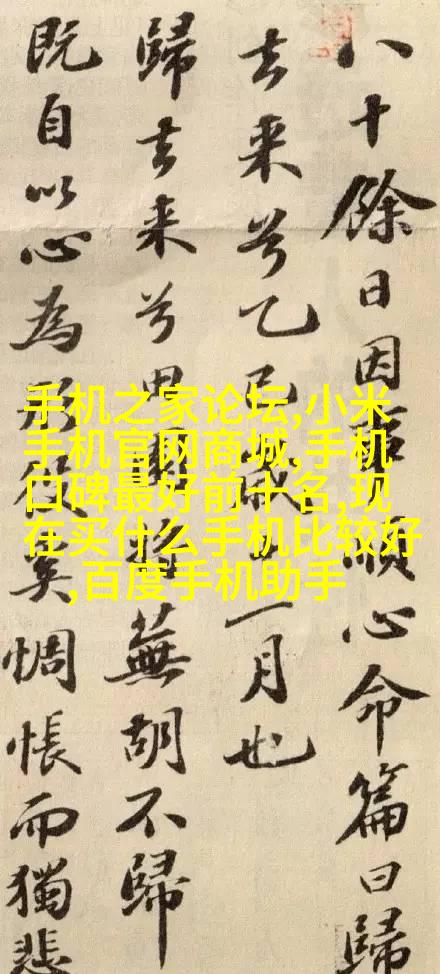 八十餘日因順心命篇曰歸
去来兮乙巳歲一月也
歸去来兮田将蕪胡不歸
既自以心為形役奚惆悵而獨悲
手机之家论坛,小米
手机官网商城,手机
口碑最好前十名,现
在买什么手机比较好
,百度手机助手